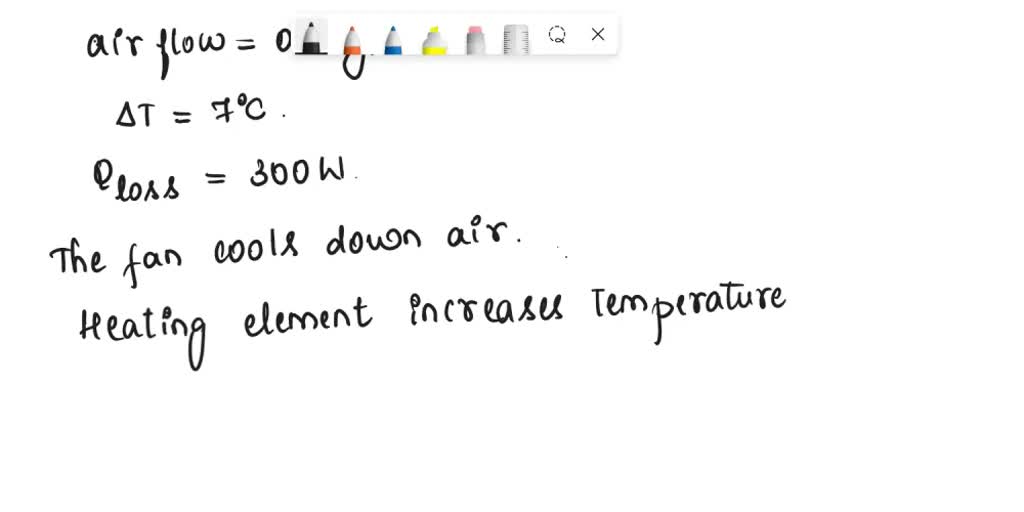 air flow = 0
ΔT = 7°C .
Qloss = 300W.
The fan cools down air.
Heating element increases Temperature